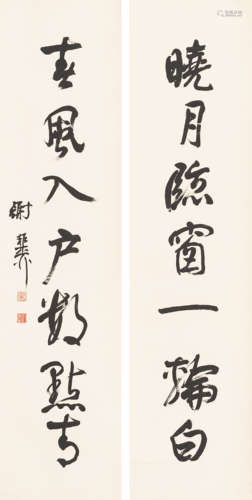 曉月臨窗一輪白
春風入户數點青
謝稚柳